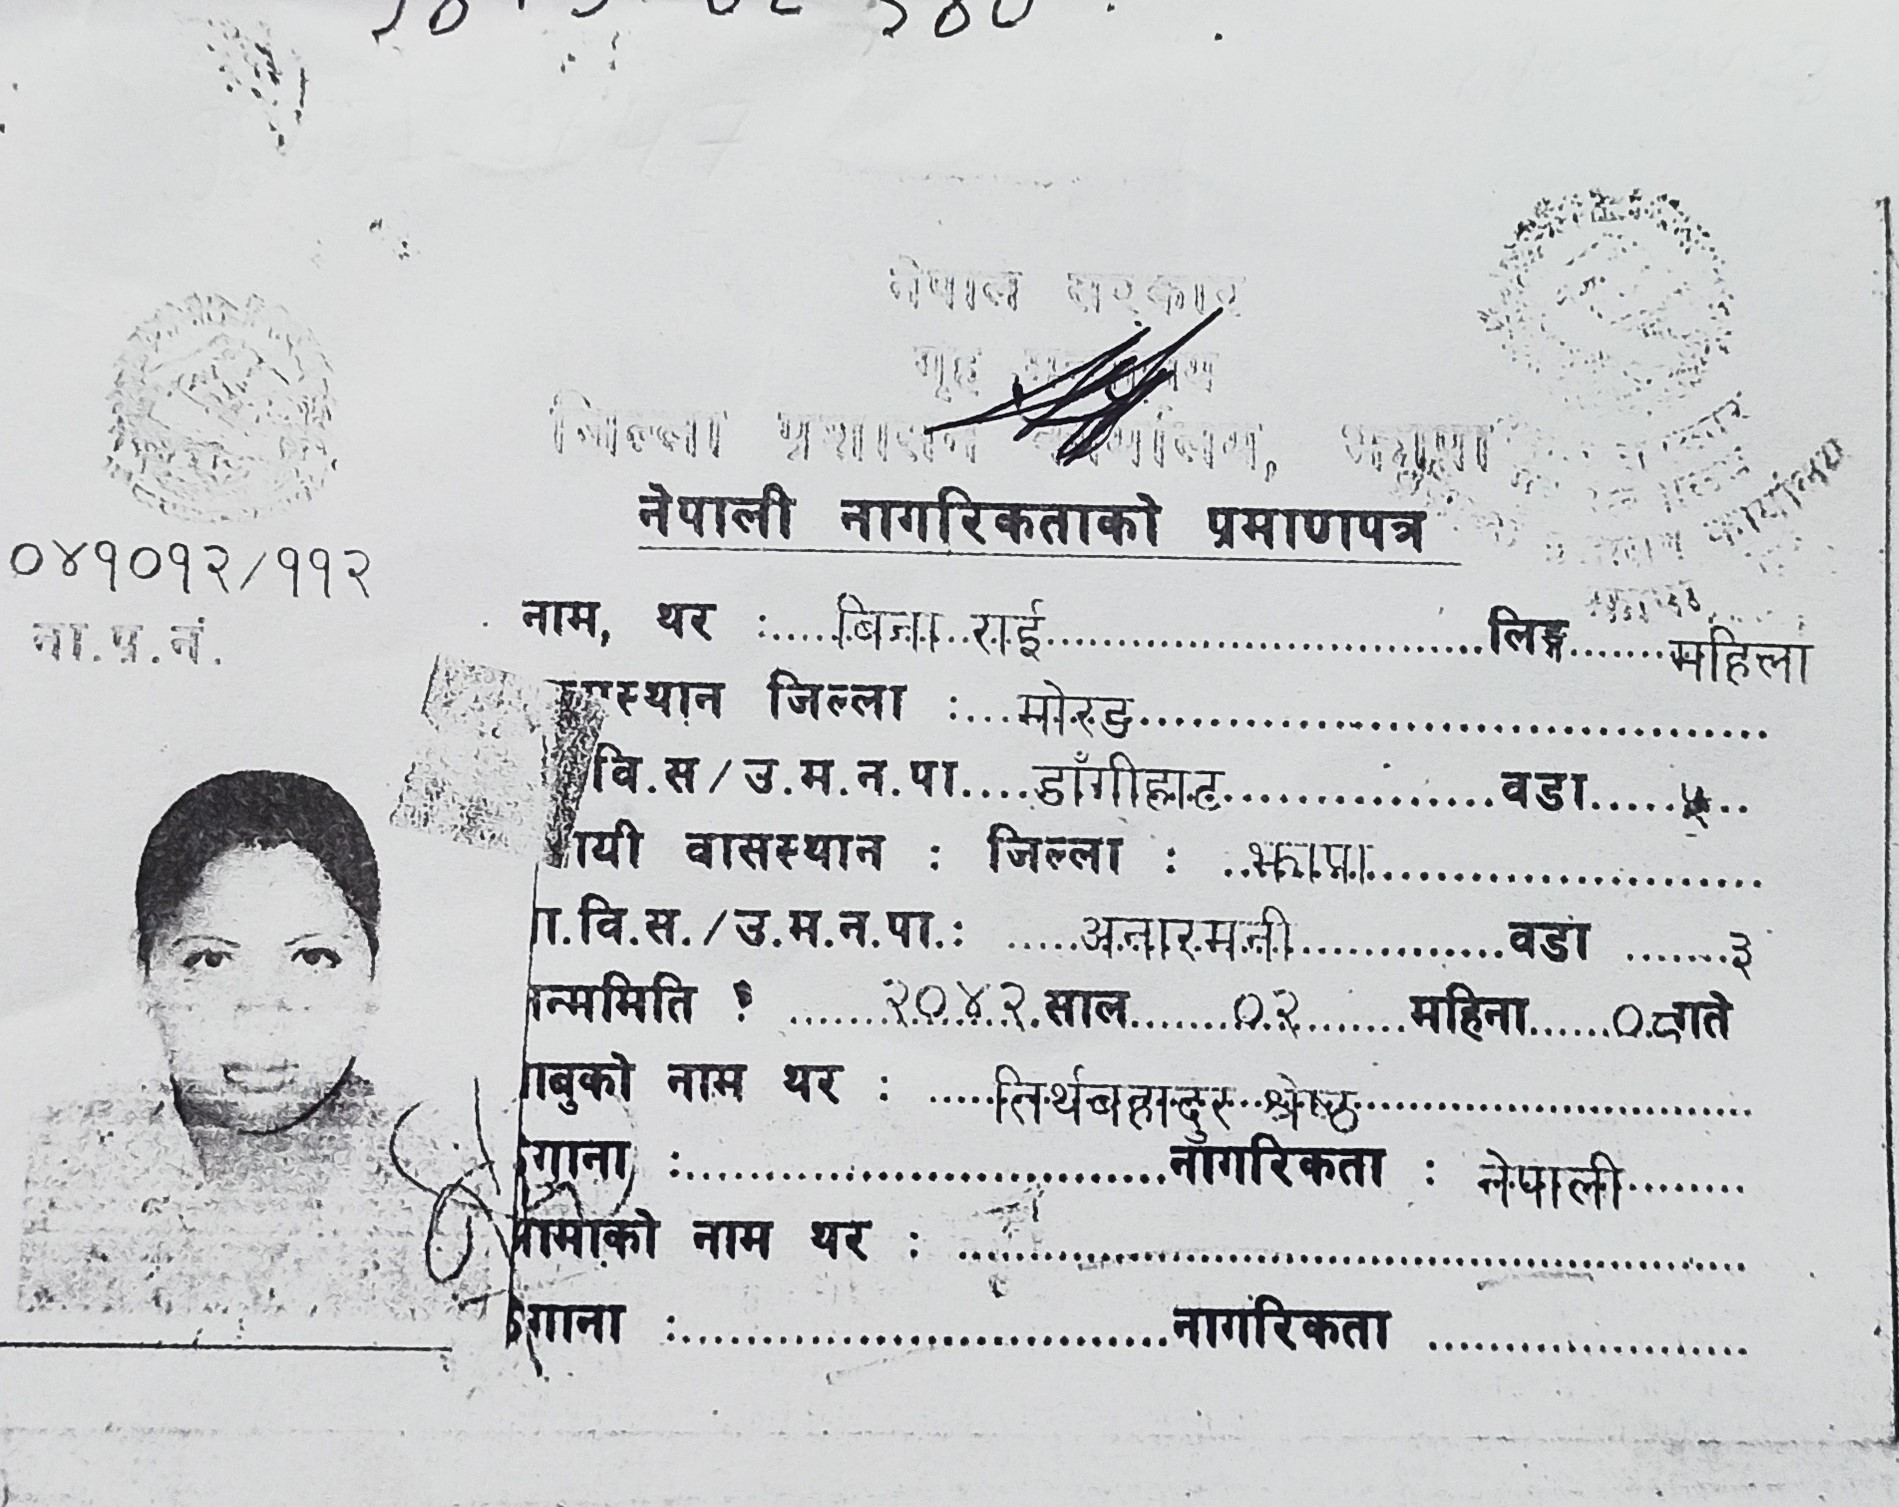 नेपाल सरकार
गृह
जिल्ला प्रशासन
नेपाली नागरिकताको प्रमाणपत्र
०४१०१२/११२
ना.प्र.नं.
नाम, थर : बिना राई लिङ्ग महिला
स्थान जिल्ला : मोरङ
वि.स/उ.म.न.पा डाँगीहाट वडा ५
ायी वासस्थान : जिल्ला : झापा
ा.वि.स./उ.म.न.पा.: अनारमनी वडा ३
न्ममिति : २०४२ साल ०२ महिना ०८ गते
ाबुको नाम थर : तिर्थबहादुर श्रेष्ठ
ेगाना : नागरिकता : नेपाली
ामाको नाम थर :
ेगाना : नागरिकता
कार्यालय